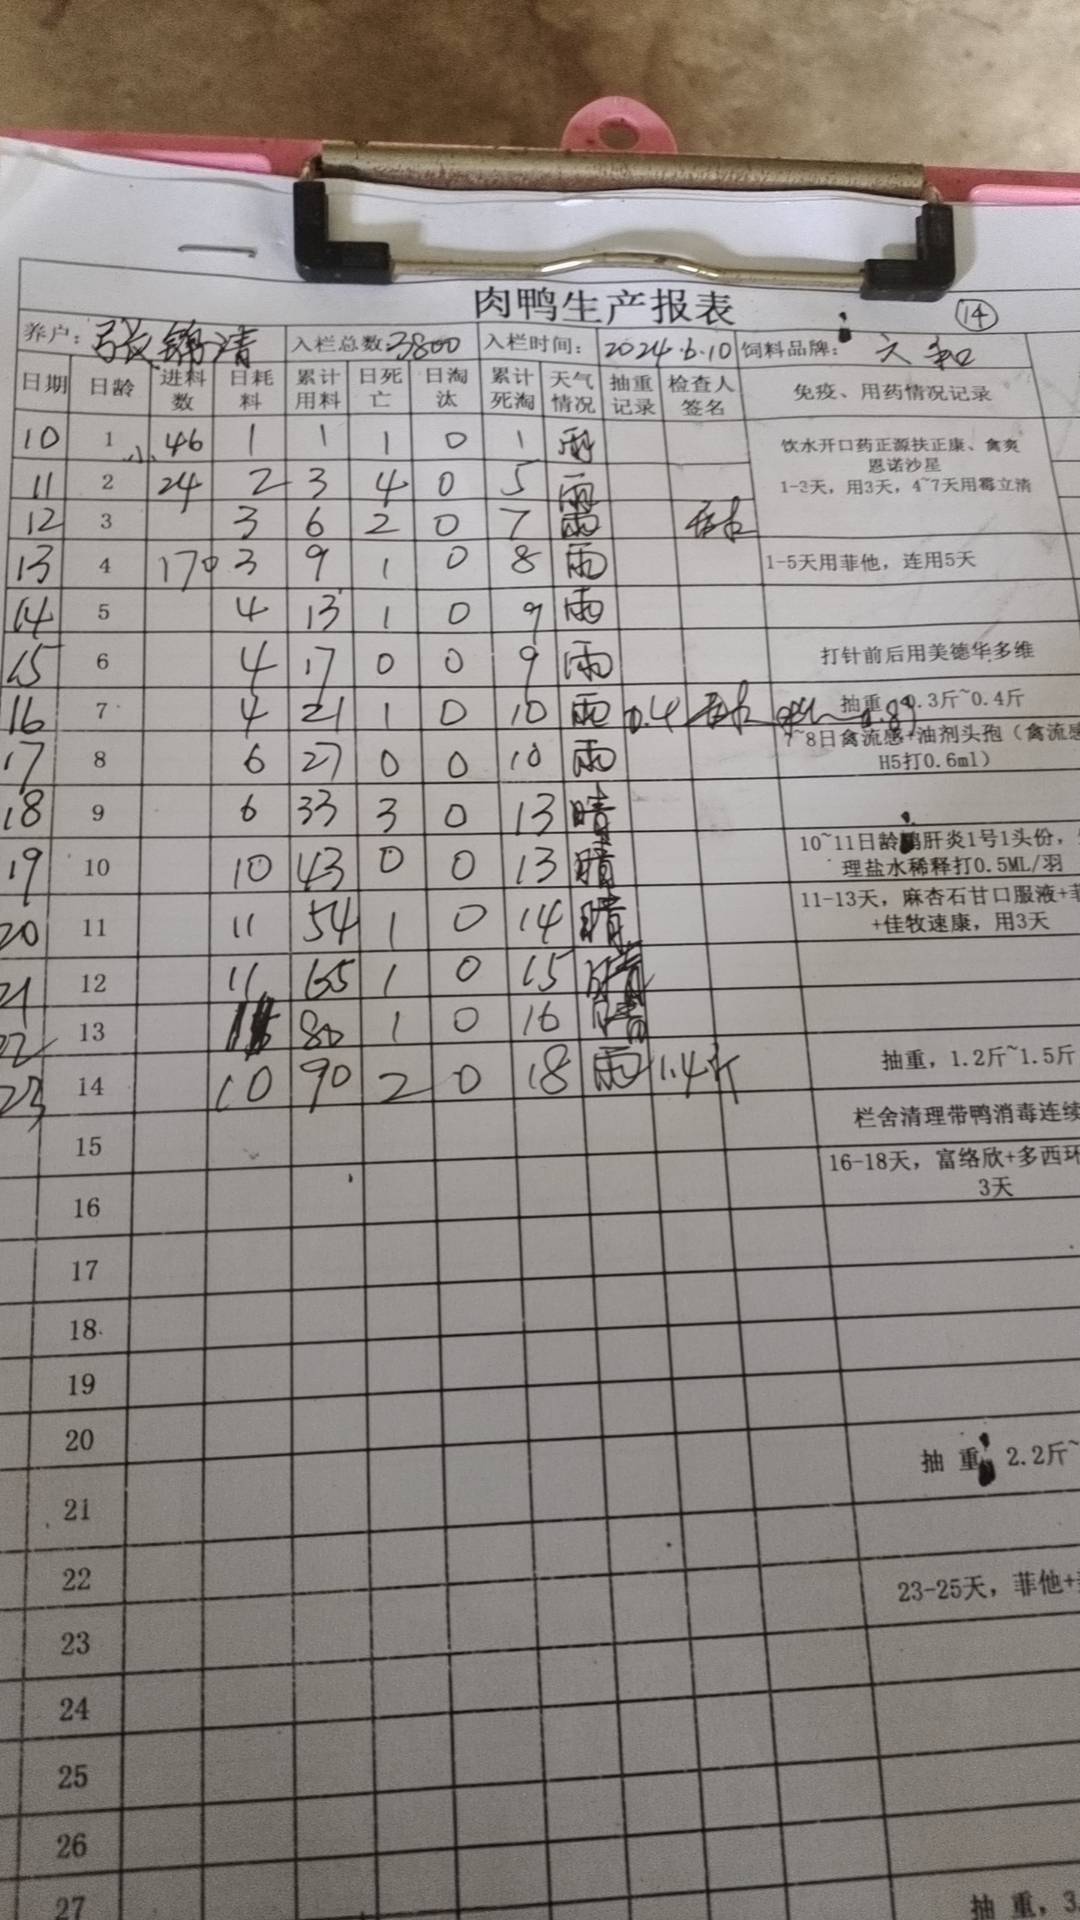 肉鸭生产报表 14
养户: 张锦清 入栏总数 3800 入栏时间: 2024.6.10 饲料品牌: 六和
日期 日龄 进料数 日耗料 累计用料 日死亡 日淘汰 累计死淘 天气情况 抽重记录 检查人签名 免疫、用药情况记录
10 1 小46 1 1 1 0 1 雨 饮水开口药正源扶正康、禽爽
恩诺沙星
11 2 24 2 3 4 0 5 雨 1-3天，用3天，4~7天用霉立清
12 3 3 6 2 0 7 雨
13 4 170 3 9 1 0 8 雨 1-5天用菲他，连用5天
14 5 4 13 1 0 9 雨
15 6 4 17 0 0 9 雨 打针前后用美德华多维
16 7 4 21 1 0 10 雨 0.4 抽重，0.3斤~0.4斤
17 8 6 27 0 0 10 雨 7~8日禽流感+油剂头孢（禽流感
H5打0.6ml）
18 9 6 33 3 0 13 晴
19 10 10 43 0 0 13 晴 10~11日龄 肝炎1号1头份，
理盐水稀释打0.5ML/羽
20 11 11 54 1 0 14 晴 11-13天，麻杏石甘口服液+菲
+佳牧速康，用3天
21 12 11 65 1 0 15 晴
22 13 80 1 0 16 晴
23 14 10 90 2 0 18 雨 1.4斤 抽重，1.2斤~1.5斤
15 栏舍清理带鸭消毒连续
16 16-18天，富络欣+多西环
3天
17
18
19
20
21 抽 重 2.2斤~
22
23 23-25天，菲他+
24
25
26
27 抽 重，3.